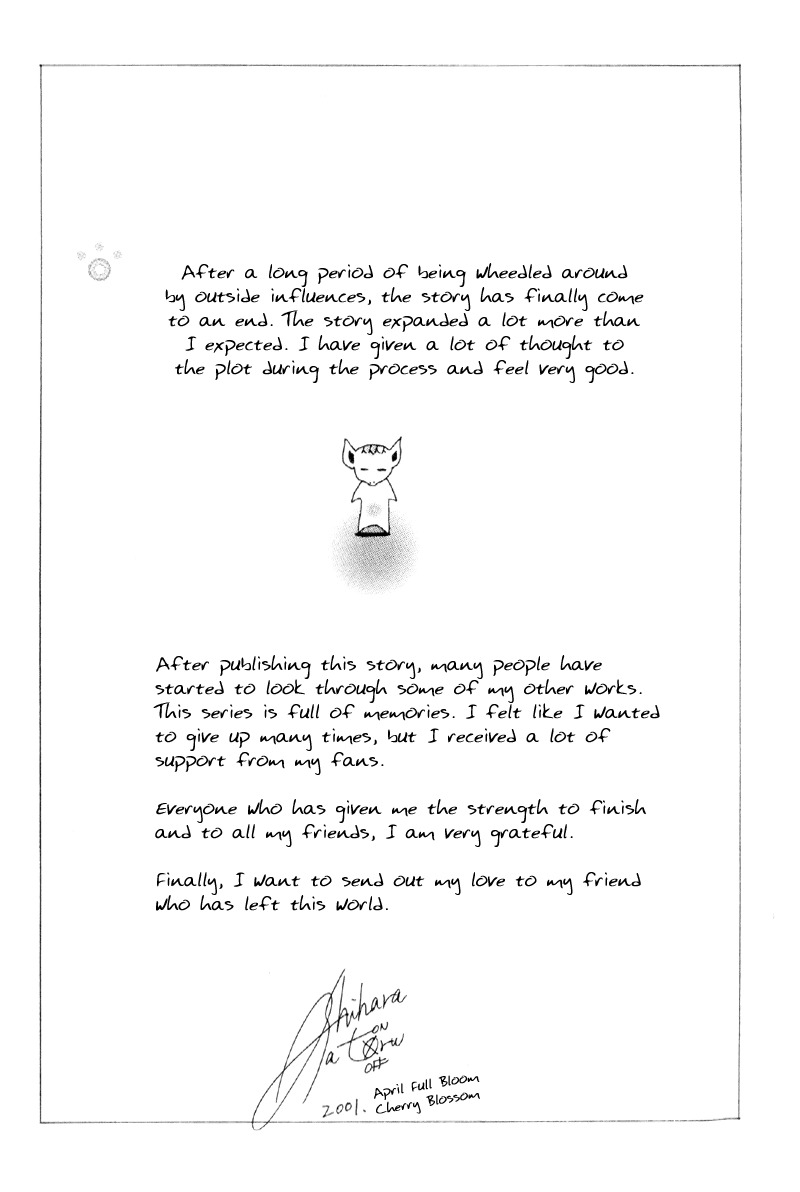 After a long period of being wheedled around
by outside influences, the story has finally come
to an end. The story expanded a lot more than
I expected. I have given a lot of thought to
the plot during the process and feel very good.
After publishing this story, many people have
started to look through some of my other works.
This series is full of memories. I felt like I wanted
to give up many times, but I received a lot of
support from my fans.
Everyone who has given me the strength to finish
and to all my friends, I am very grateful.
Finally, I want to send out my love to my friend
who has left this world.
Shihara
ON
Satoru
OFF
2001. April Full Bloom
Cherry Blossom